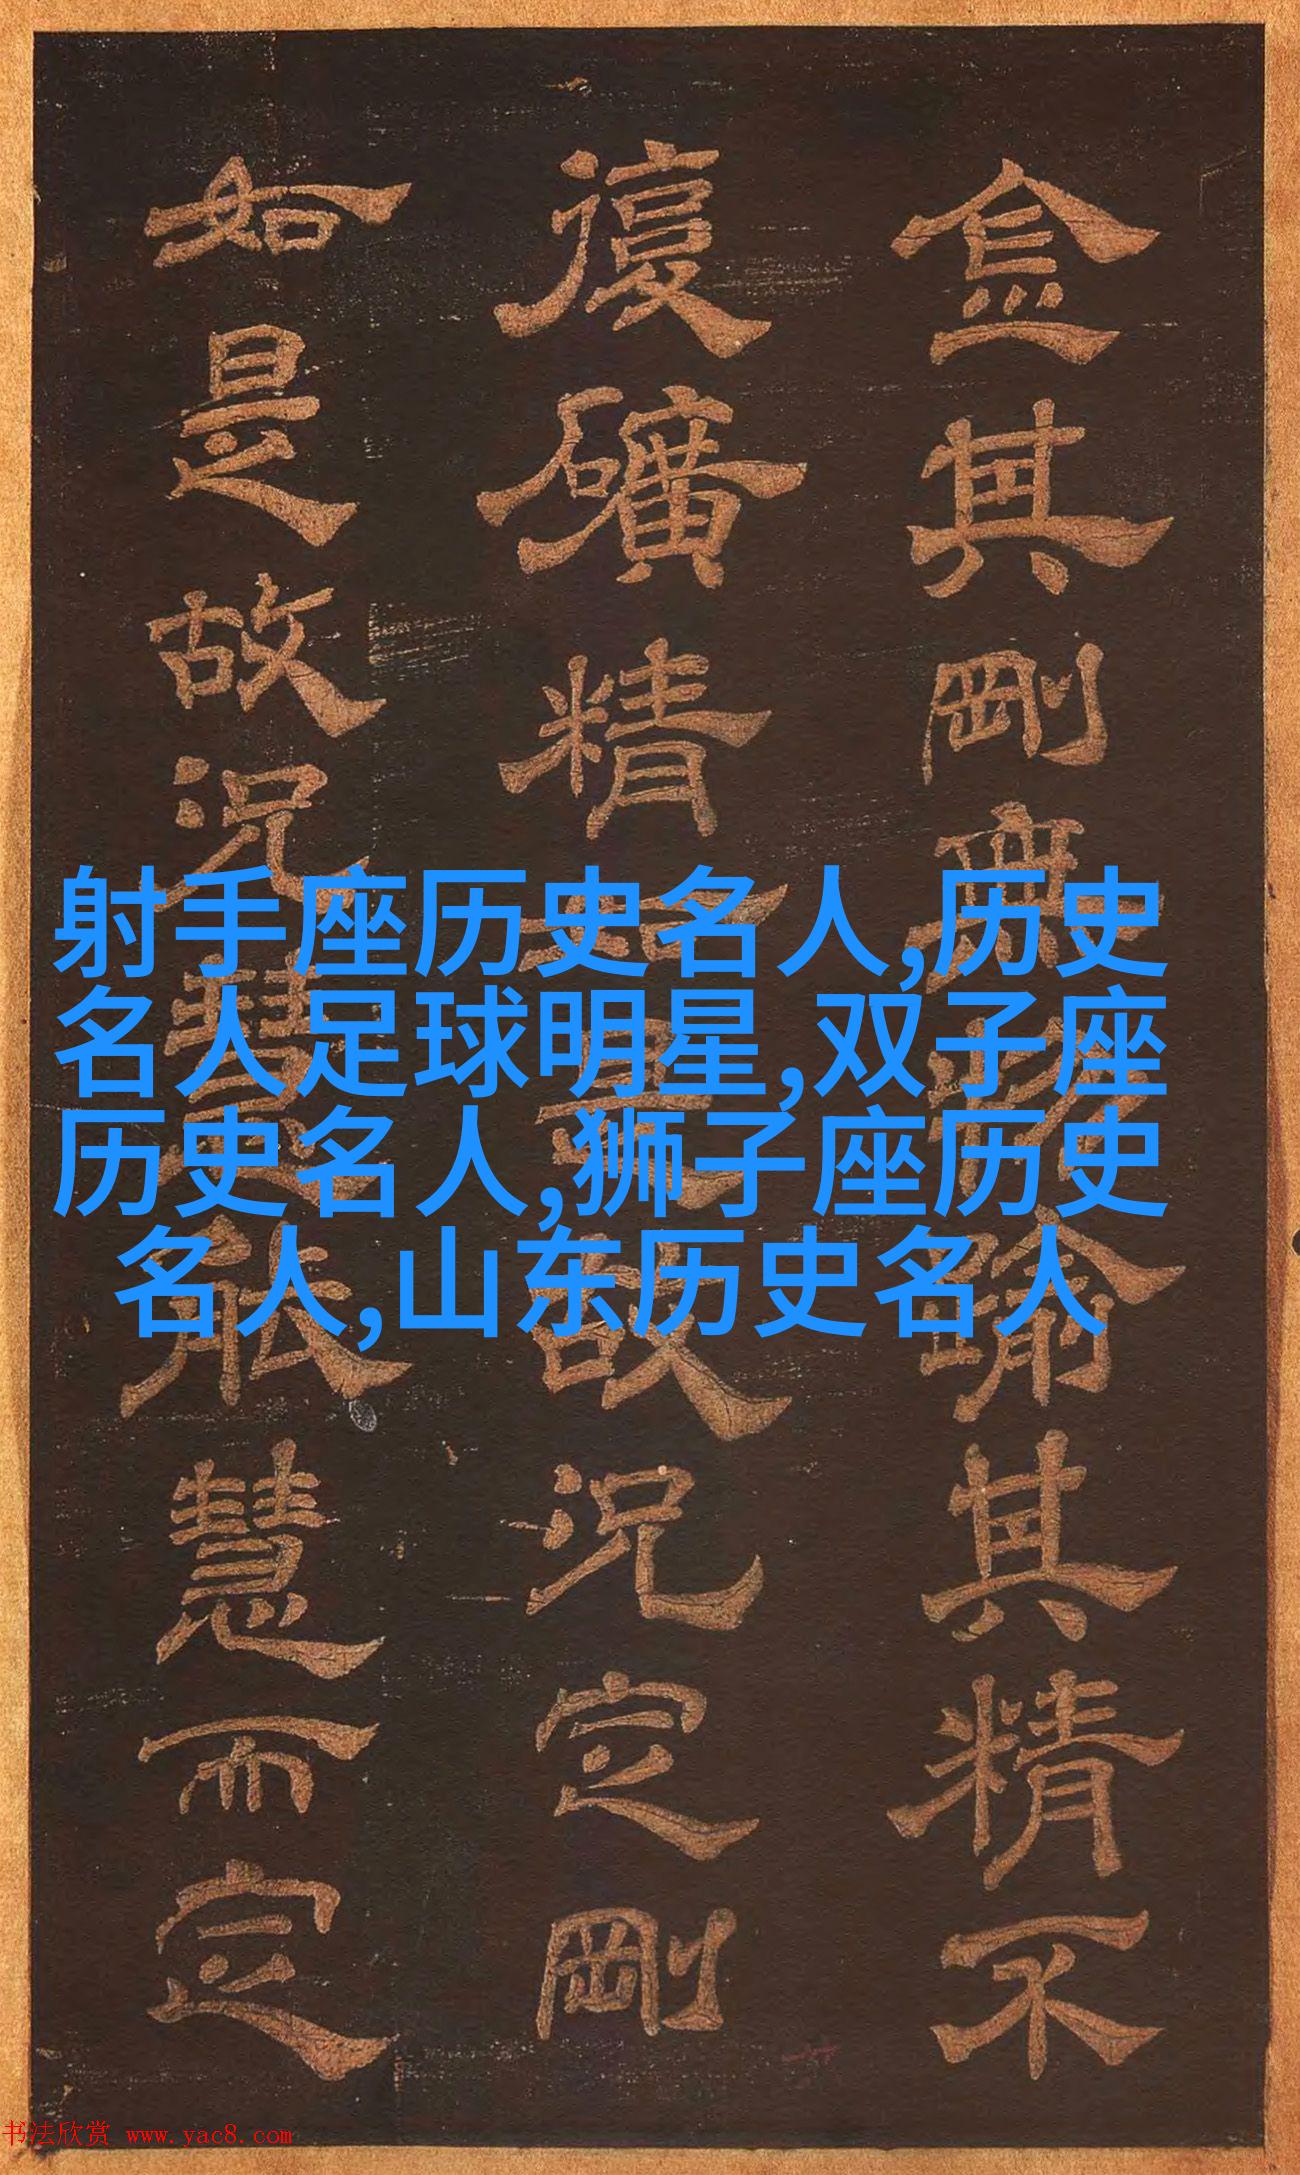 金其剛無物踰其精不
復礦精如是故況定剛
如是故況慧能慧而定
射手座历史名人,历史
名人足球明星,双子座
历史名人,狮子座历史
名人,山东历史名人
书法欣赏 www.yac8.com